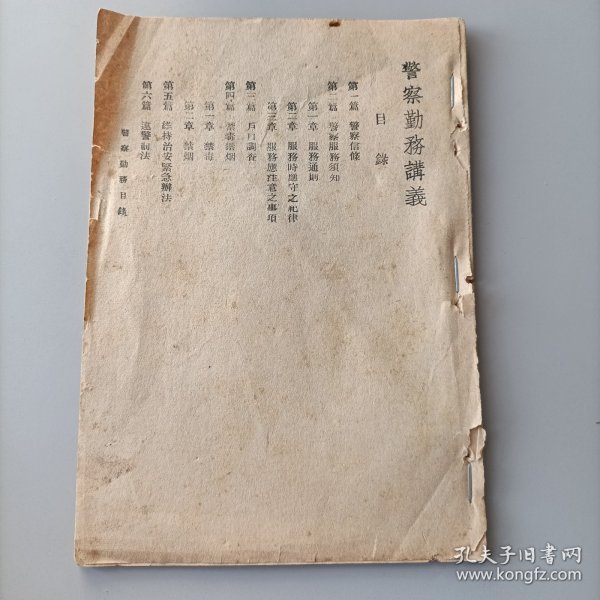 警察勤務講義
目錄
第一篇 警察信條
第二篇 警察服務須知
第一章 服務通則
第二章 服務時應守之紀律
第三章 服務應注意之事項
第三篇 戶口調查
第四篇 禁毒禁烟
第一章 禁毒
第二章 禁烟
第五篇 維持治安緊急辦法
第六篇 違警罰法
警察勤務目錄
孔夫子旧书网
www.kongfz.com